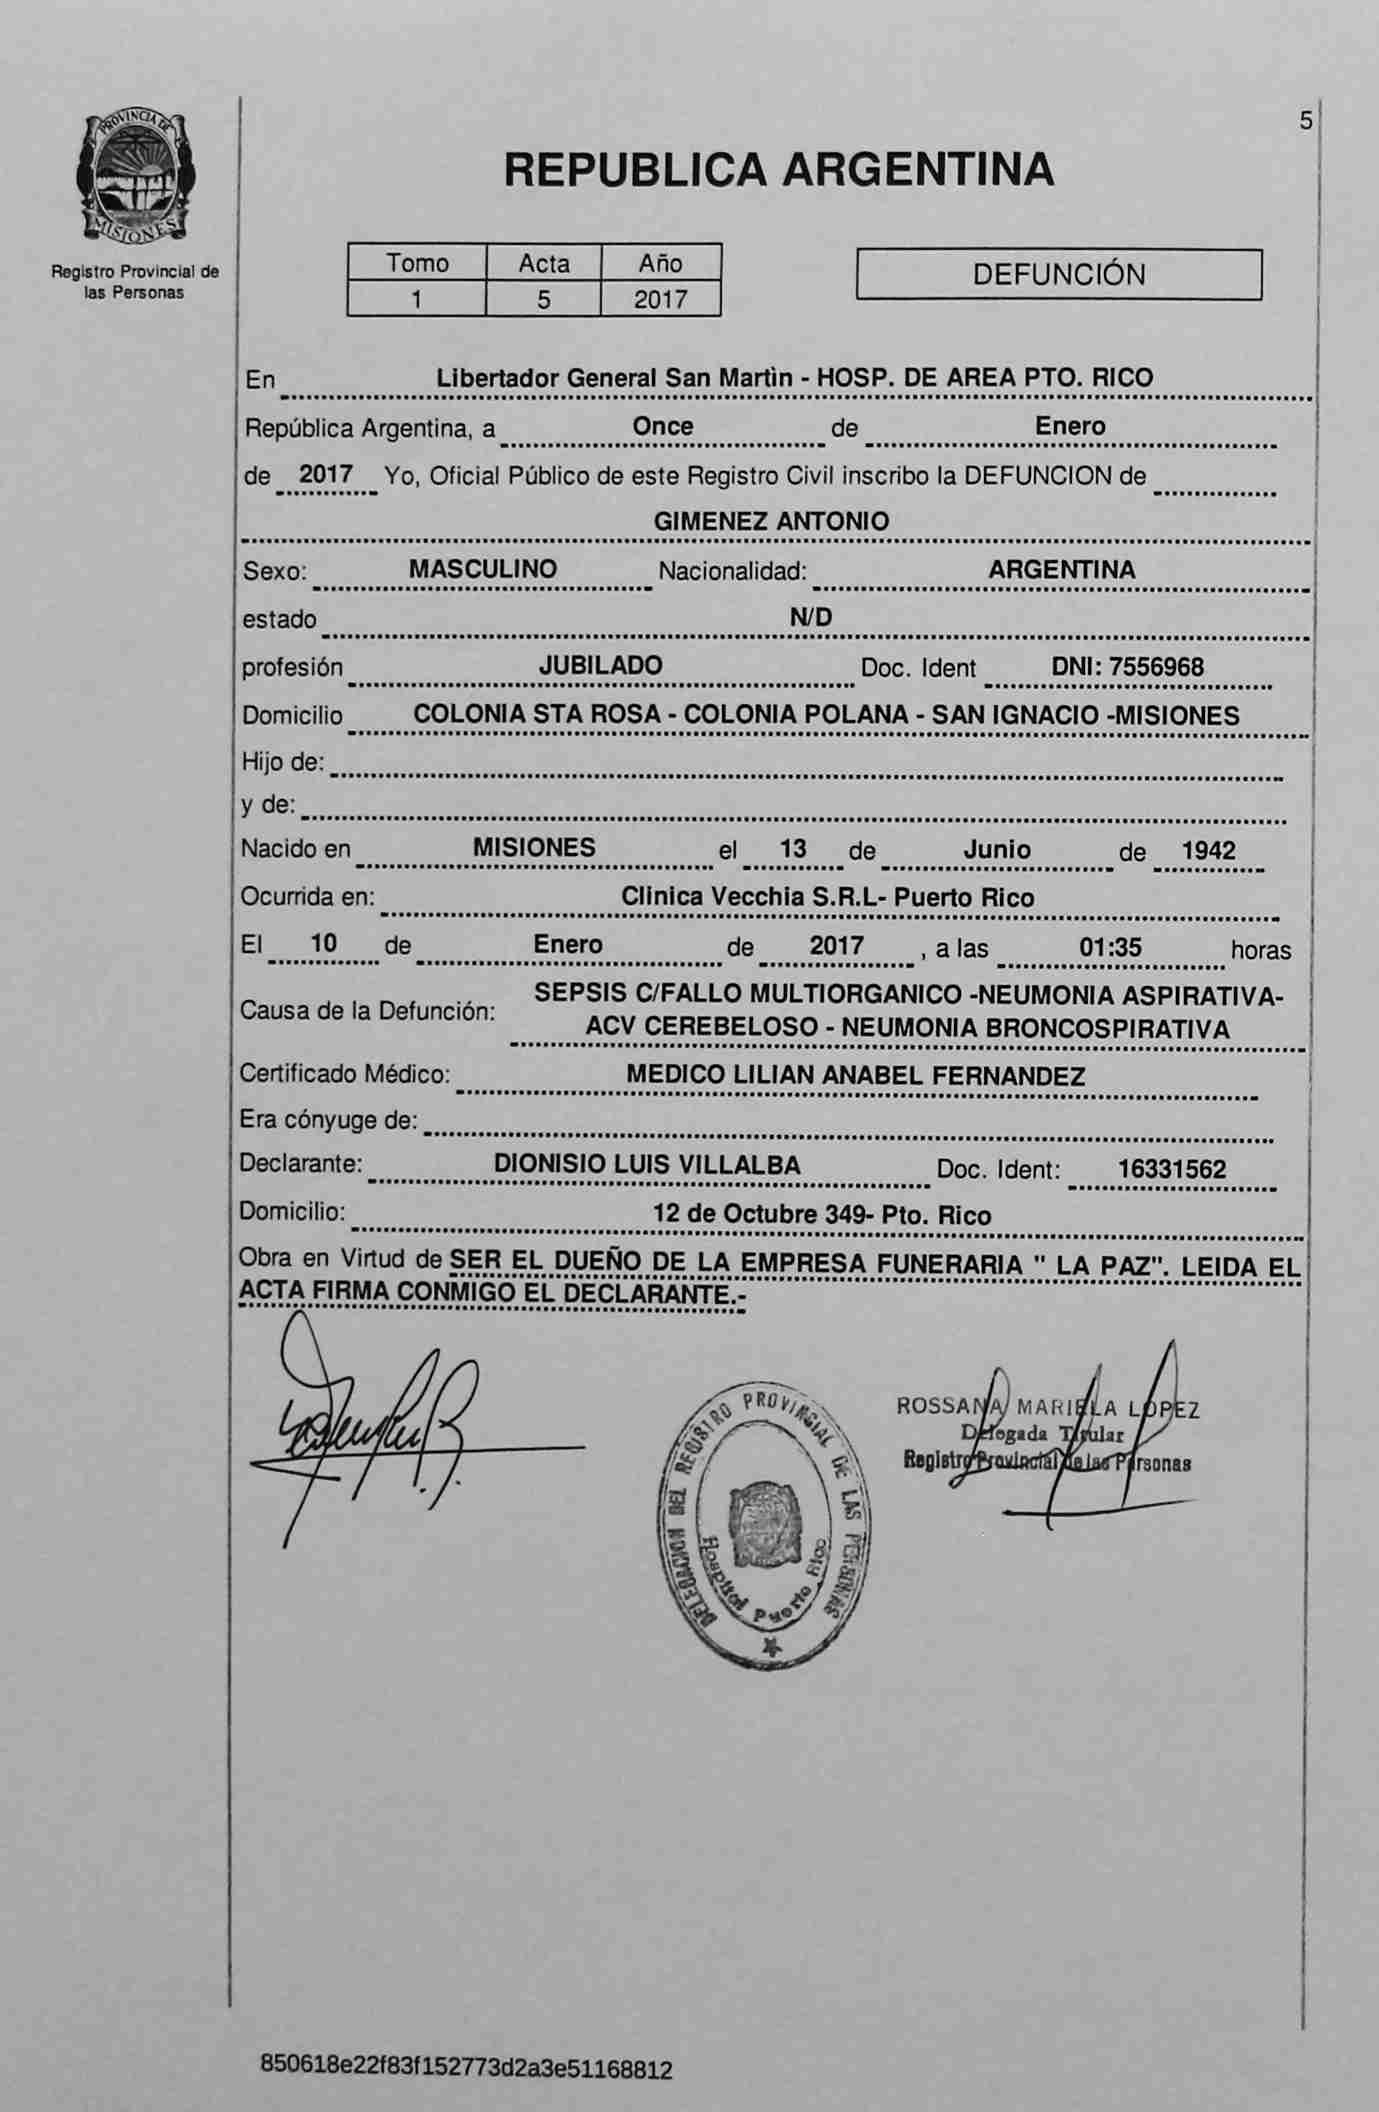 5
PROVINCIA DE
MISIONES
Registro Provincial de
las Personas
REPUBLICA ARGENTINA
Tomo Acta Año
1 5 2017
DEFUNCIÓN
En Libertador General San Martìn - HOSP. DE AREA PTO. RICO
República Argentina, a Once de Enero
de 2017 Yo, Oficial Público de este Registro Civil inscribo la DEFUNCION de
GIMENEZ ANTONIO
Sexo: MASCULINO Nacionalidad: ARGENTINA
estado N/D
profesión JUBILADO Doc. Ident DNI: 7556968
Domicilio COLONIA STA ROSA - COLONIA POLANA - SAN IGNACIO -MISIONES
Hijo de:
y de:
Nacido en MISIONES el 13 de Junio de 1942
Ocurrida en: Clinica Vecchia S.R.L- Puerto Rico
El 10 de Enero de 2017 , a las 01:35 horas
Causa de la Defunción: SEPSIS C/FALLO MULTIORGANICO -NEUMONIA ASPIRATIVA-
ACV CEREBELOSO - NEUMONIA BRONCOSPIRATIVA
Certificado Médico: MEDICO LILIAN ANABEL FERNANDEZ
Era cónyuge de:
Declarante: DIONISIO LUIS VILLALBA Doc. Ident: 16331562
Domicilio: 12 de Octubre 349- Pto. Rico
Obra en Virtud de SER EL DUEÑO DE LA EMPRESA FUNERARIA " LA PAZ". LEIDA EL
ACTA FIRMA CONMIGO EL DECLARANTE.-
DELEGACION DEL REGISTRO PROVINCIAL DE LAS PERSONAS
Hospital Puerto Rico
ROSSANA MARIELA LOPEZ
Delegada Titular
Registro Provincial de las Personas
850618e22f83f152773d2a3e51168812